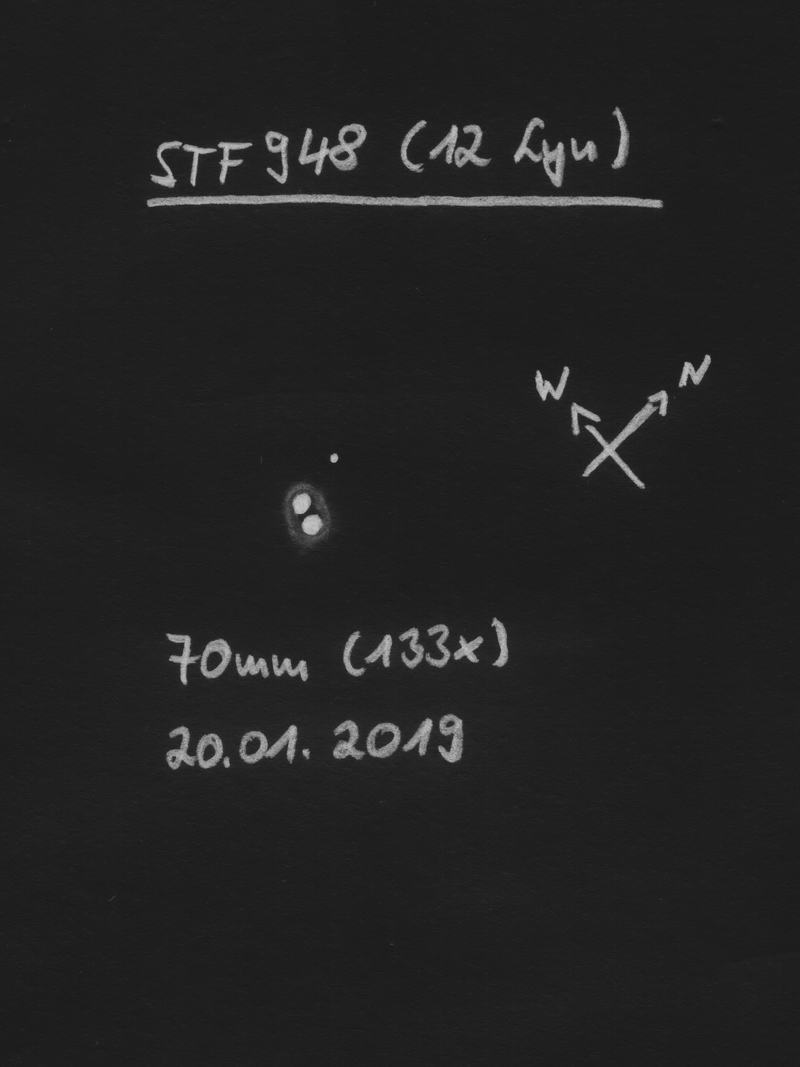 STF 948 (12 Lyn)
W N
70mm (133x)
20.01.2019